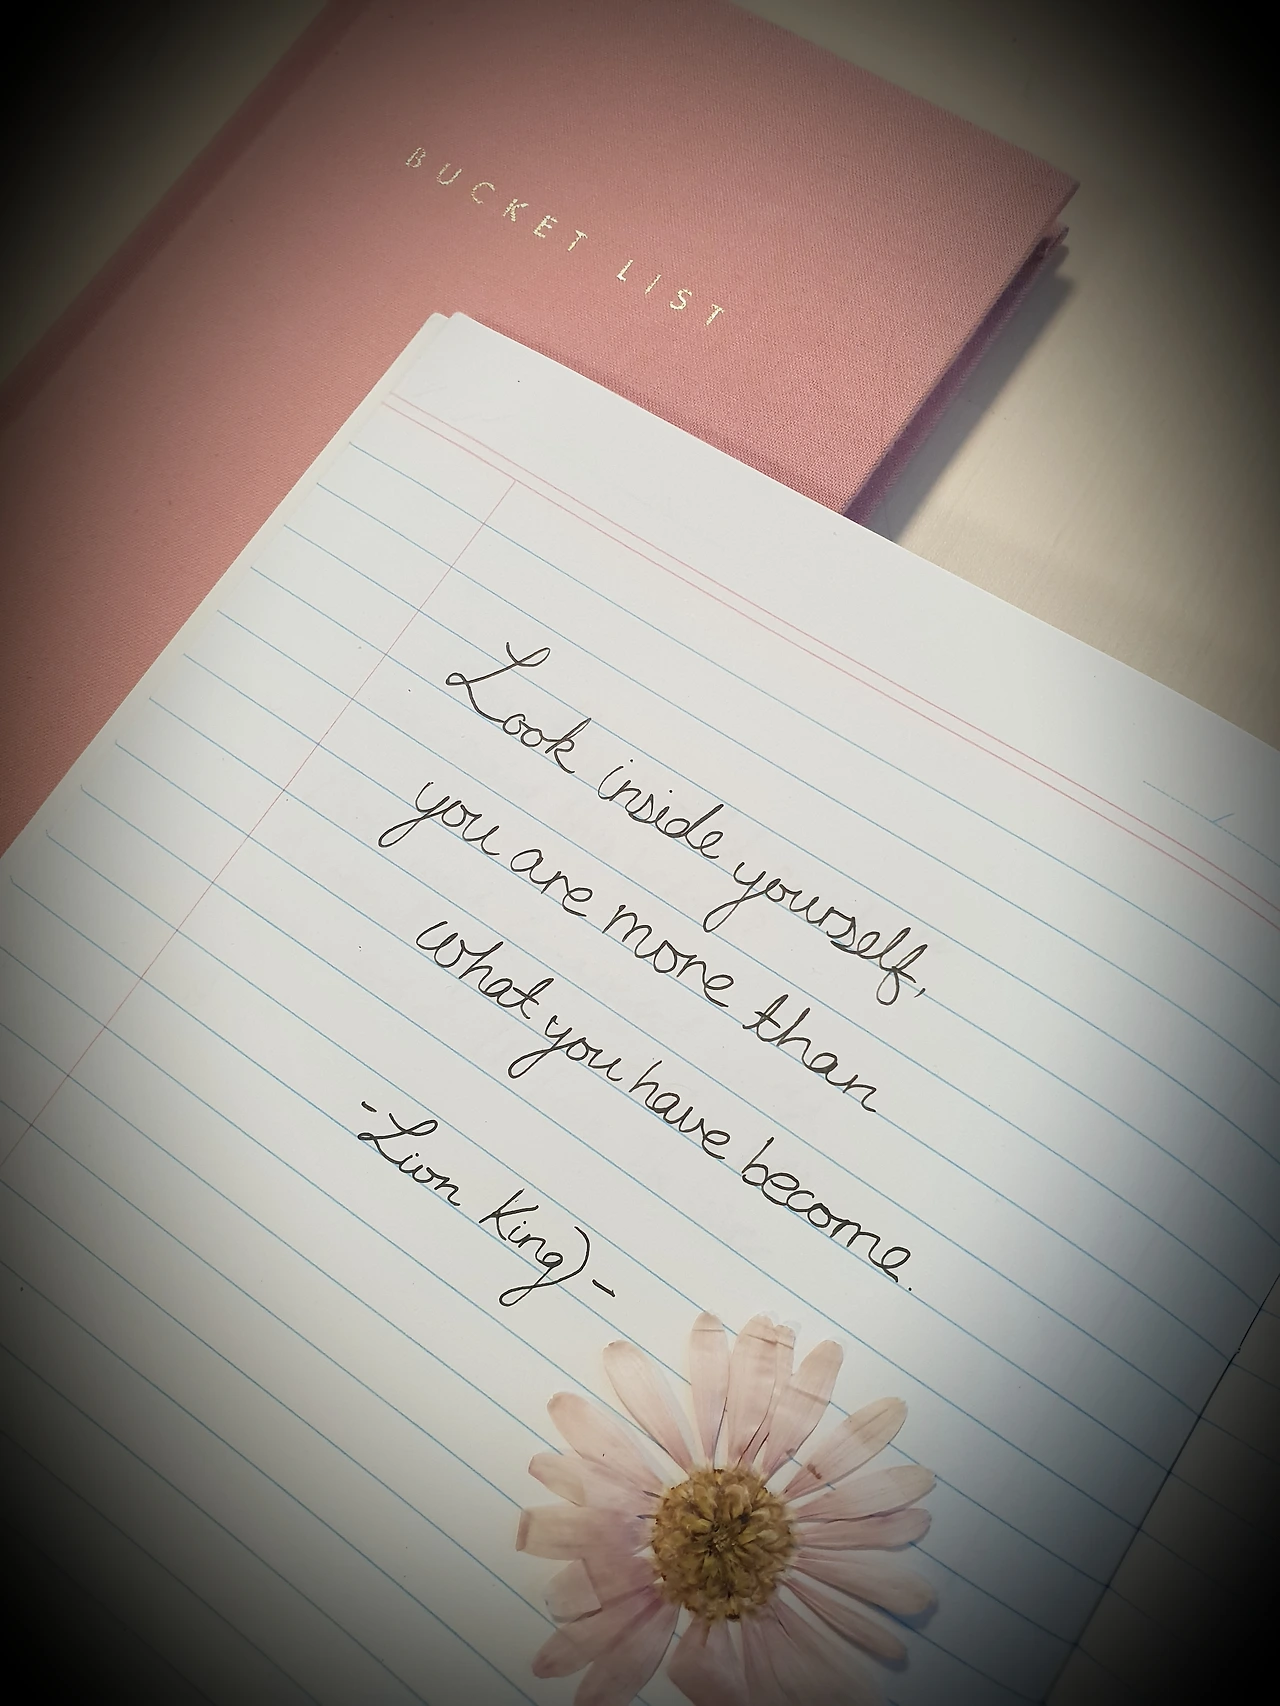 BUCKET LIST
Look inside yourself,
you are more than
what you have become.
-Lion King)-